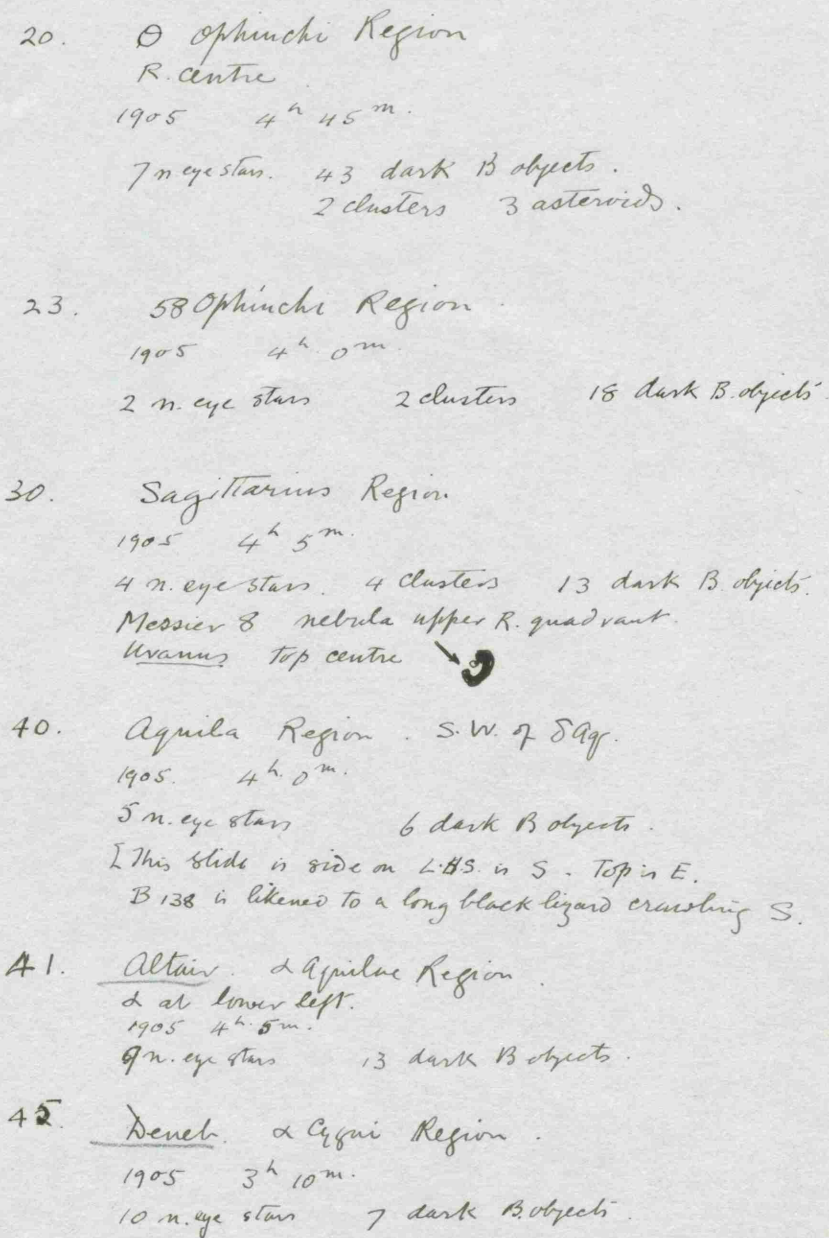 20. θ Ophiuchi Region
R. centre
1905 4h 45m.
7 n eye stars. 43 dark B objects.
2 clusters 3 asteroids.
23. 58 Ophiuchi Region.
1905 4h. 0m.
2 n. eye stars 2 clusters 18 dark B. objects.
30. Sagittarius Region
1905 4h 5m.
4 n. eye stars. 4 clusters 13 dark B objects.
Messier 8 nebula upper R. quadrant.
Uranus top centre
40. Aquila Region. S.W. of δ Aq.
1905. 4h. 0m.
5 n. eye stars 6 dark B objects.
[This slide is side on L.H.S. is S. Top is E.
B 138 is likened to a long black lizard crawling S.
41. Altair. α Aquilae Region.
α at lower left.
1905 4h. 5m.
9 n. eye stars 13 dark B objects.
45. Deneb. α Cygni Region.
1905 3h 10m.
10 n. eye stars 7 dark B. objects.